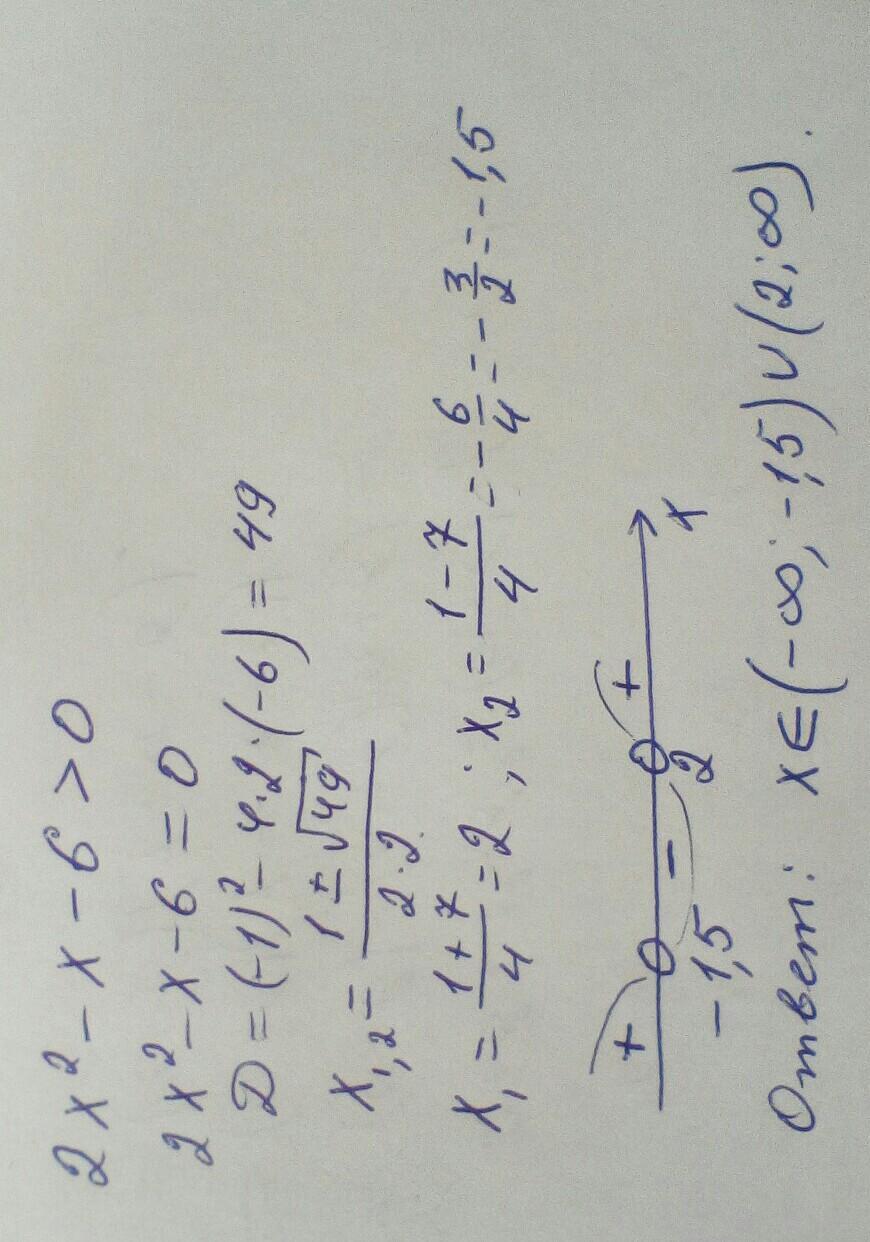 2x² - x - 6 > 0
2x² - x - 6 = 0
D = (-1)² - 4·2·(-6) = 49
x₁,₂ = (1 ± √49)/(2·2)
x₁ = (1 + 7)/4 = 2 ; x₂ = (1 - 7)/4 = -6/4 = -3/2 = -1,5
+ - +
-1,5 2 x
Ответ: x ∈ (-∞; -1,5) ∪ (2; ∞).